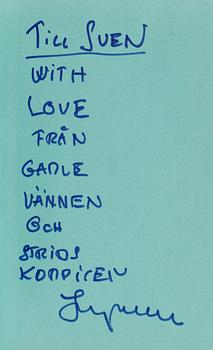 TILL SVEN
WITH
LOVE
FRÅN
GAMLE
VÄNNEN
OCH
STRIDS
KOMPISEN